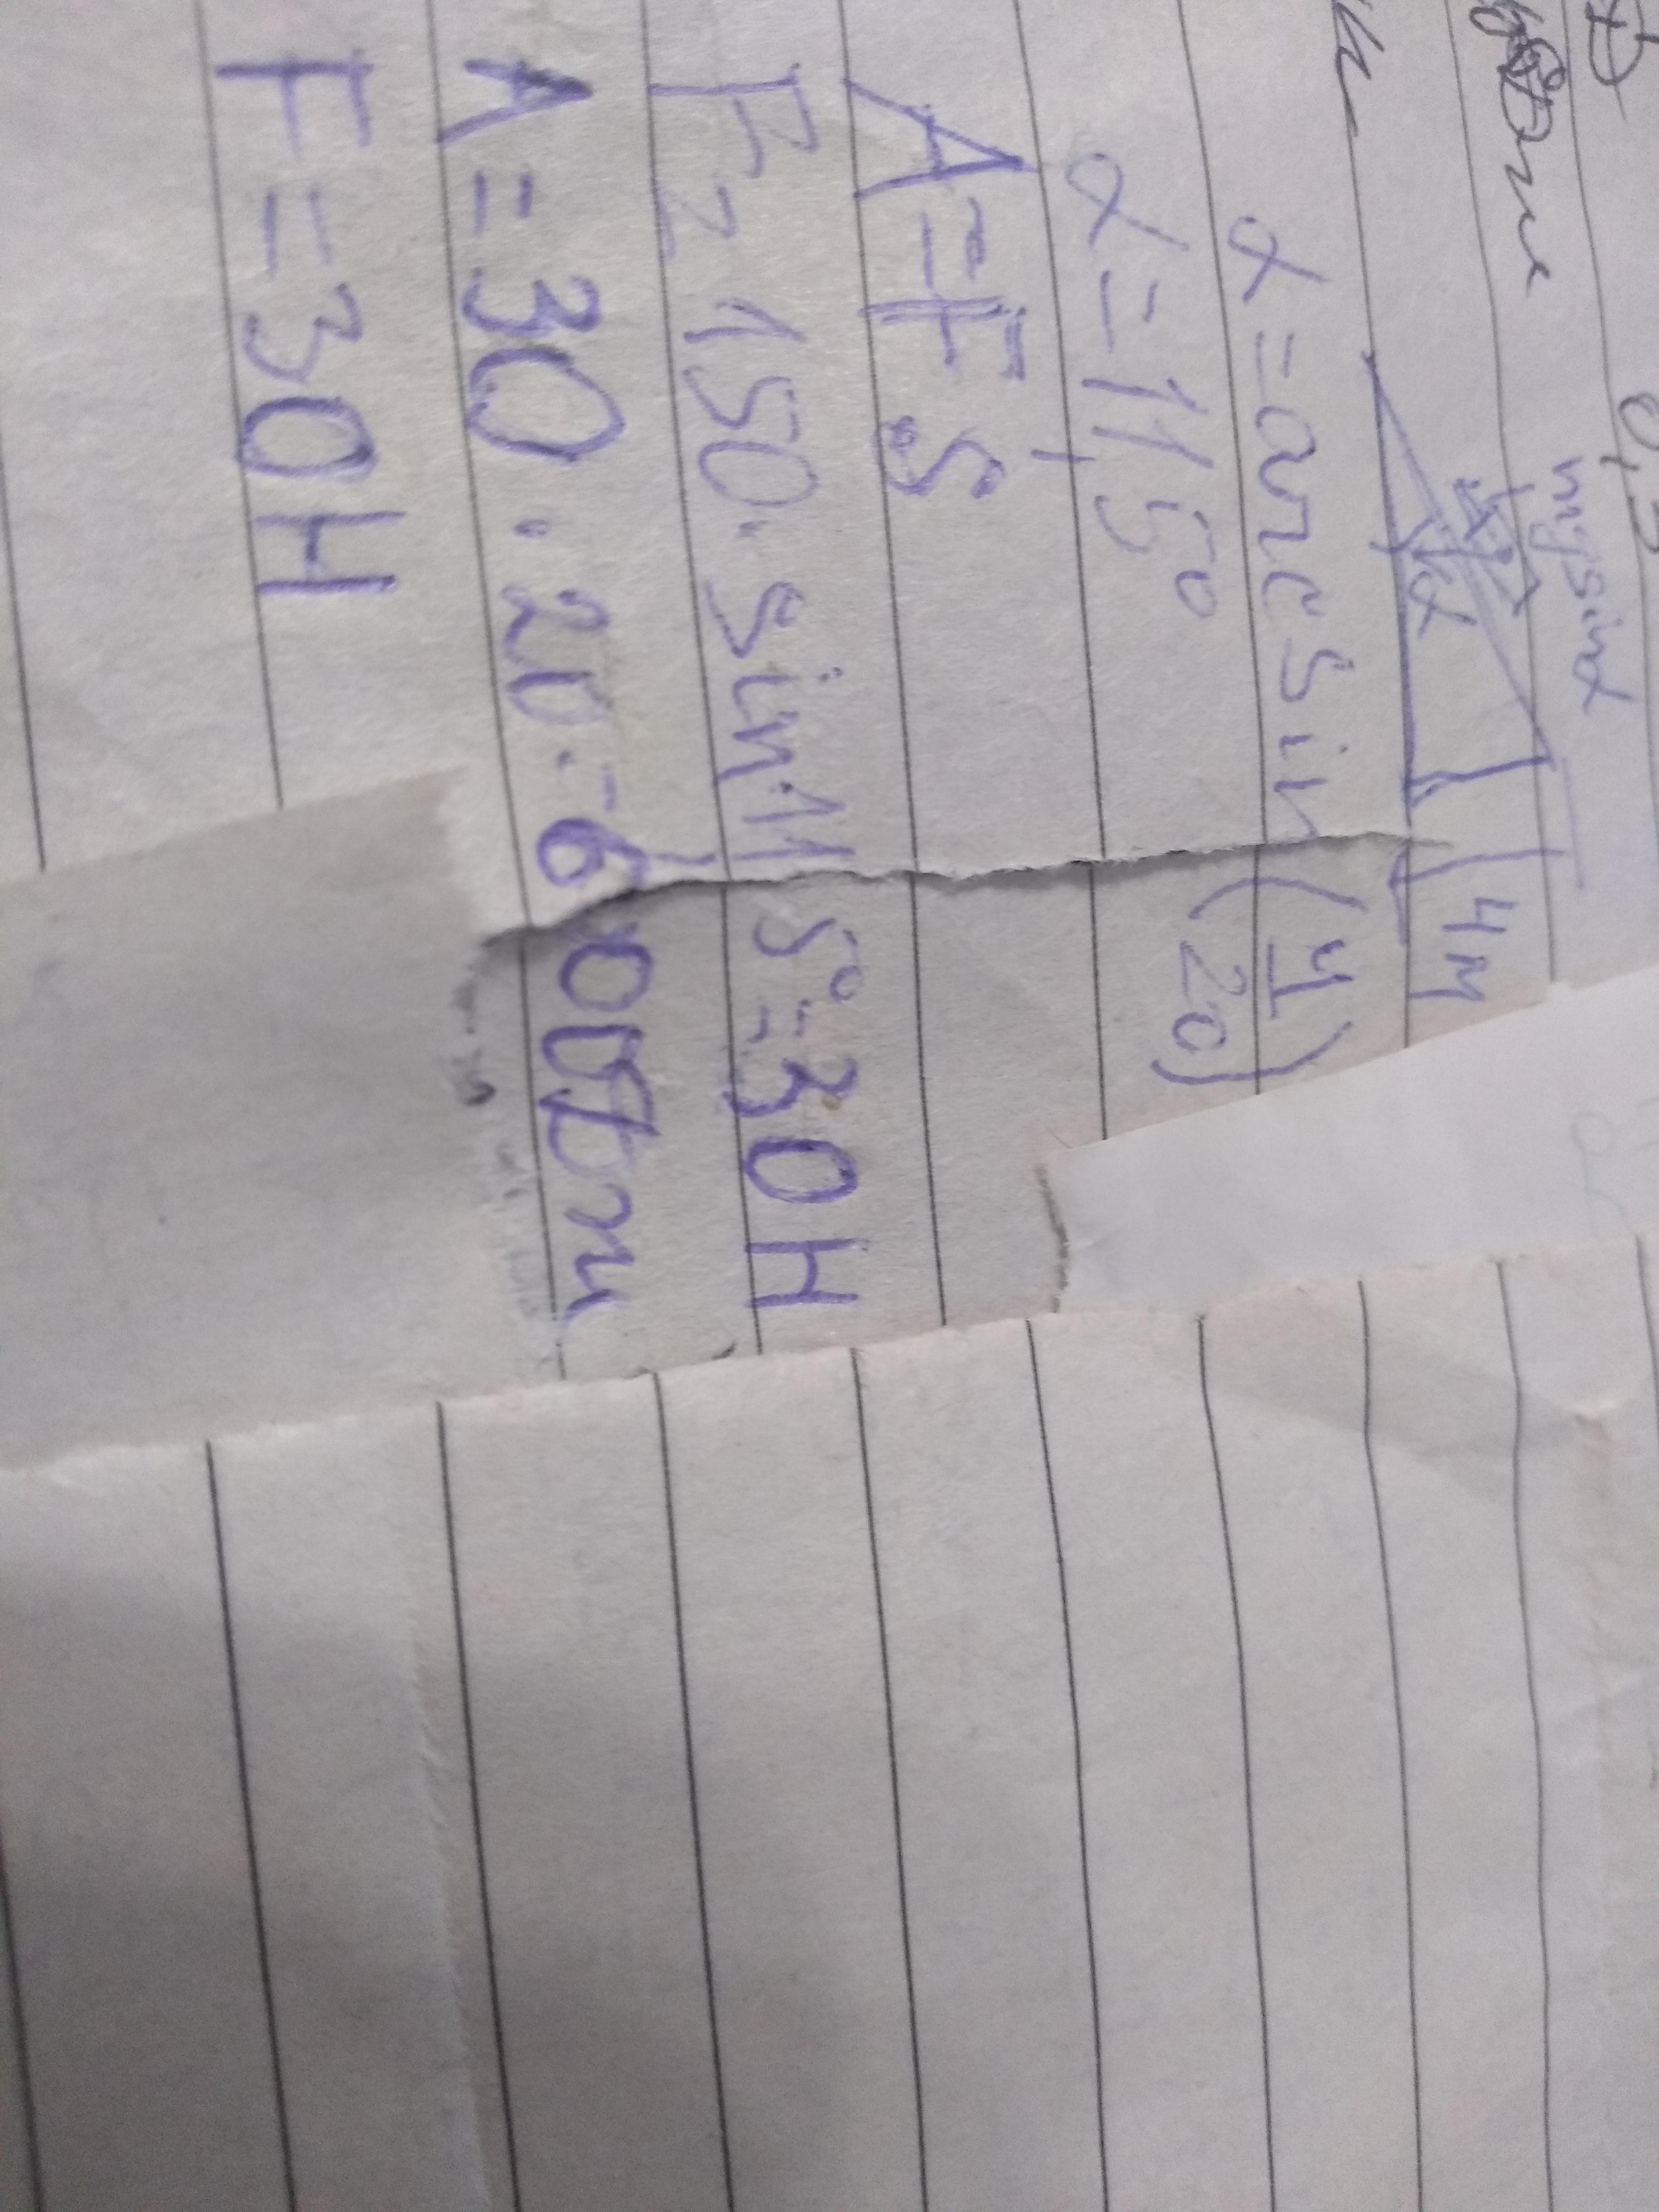 mgsinα
4м
α
α=arcsin(4/20)
α=11,5°
A=F S
F=150·sin11,5°=30H
A=30·20=600Дж
F=30H